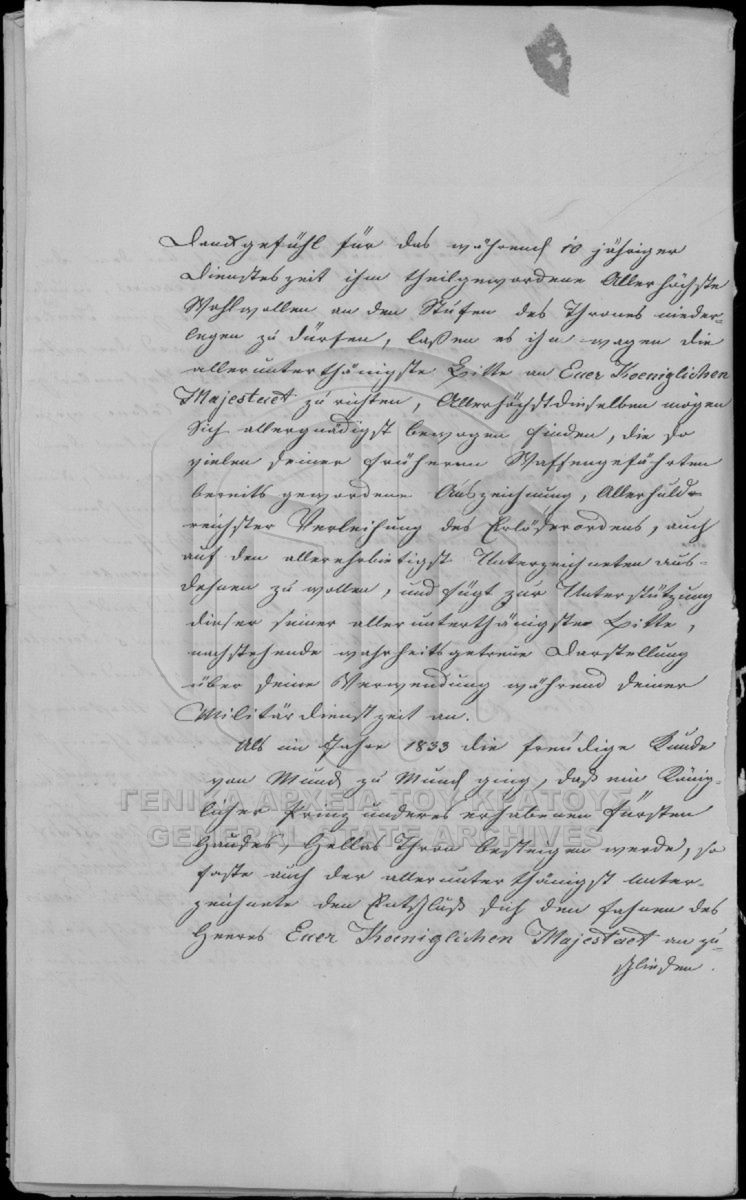 Dankgefühl für das während 10 jähriger
Diensteszeit ihm theilgewordene Allerhöchste
Wohlwollen an den Stufen des Thrones nieder-
legen zu dürfen, laßen es ihn wagen die
allerunterthänigste Bitte an Euer Koeniglichen
Majestaet zu richten, Allerhöchstdieselben mögen
Sich allergnädigst bewogen finden, die so
vielen seiner früheren Waffengefährten
bereits gewordene Auszeichnung, Allerhuld-
reichster Verleihung des Erlöserordens, auch
auf den allerehrbietigst Unterzeichneten aus-
dehnen zu wollen, und fügt zur Unterstützung
dieser seiner allerunterthänigsten Bitte,
nachstehende wahrheitsgetreue Darstellung
über seine Verwendung während seiner
Militärdienstzeit an.
Als im Jahre 1833 die freudige Kunde
von Mund zu Mund ging, daß ein König-
licher Prinz unseres erhabenen Fürsten
Hauses, Hellas Thron besteigen werde, so
faste auch der allerunterthänigst Unter-
zeichnete den Entschluß sich den Fahnen des
Heeres Euer Koeniglichen Majestaet an zu-
schließen.
ΓΕΝΙΚΑ ΑΡΧΕΙΑ ΤΟΥ ΚΡΑΤΟΥΣ
GENERAL STATE ARCHIVES